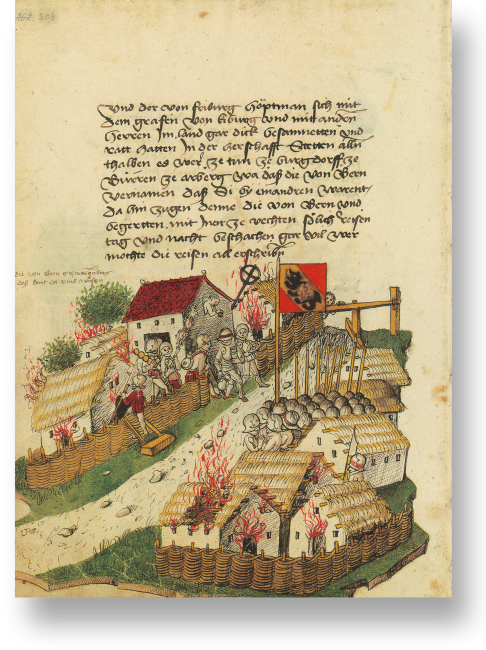 262 203
Vnd der von friburg höptman sich mit
dem grafen von kiburg vnd mit andren
herren Im land gar dick besamnetten vnd
ratt hatten In der herschafft Stetten alln
thalben es wer, ze tun ze burgdorff, ze
Bürren ze arberg wa daß die von Bern
vernamen daß Si by einandren warent,
Da hin zugen denne die von Bern vnd
begertten mit Inen ze vechten sölich reisen
tag vnd nacht beschachen gar vil Wer
möchte die reisen all erschribn
die von Bern